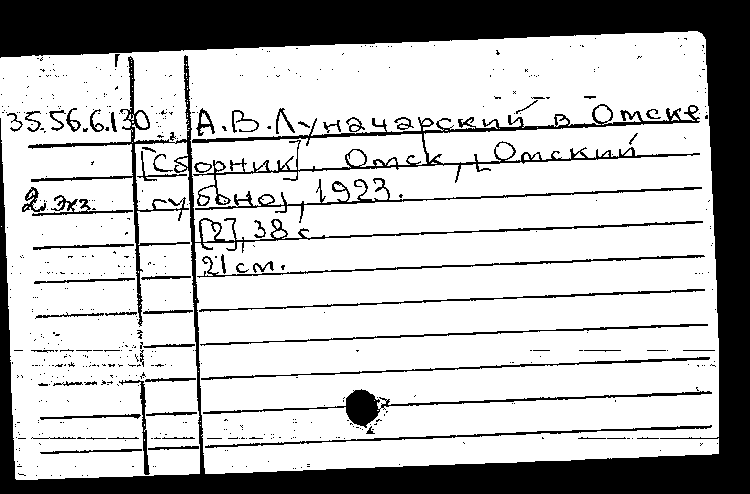 35.56.6.130 А.В.Луначарский в Омске.
[Сборник]. Омск, [Омский
2 экз. губоно], 1923.
[2], 38 с.
21 см.